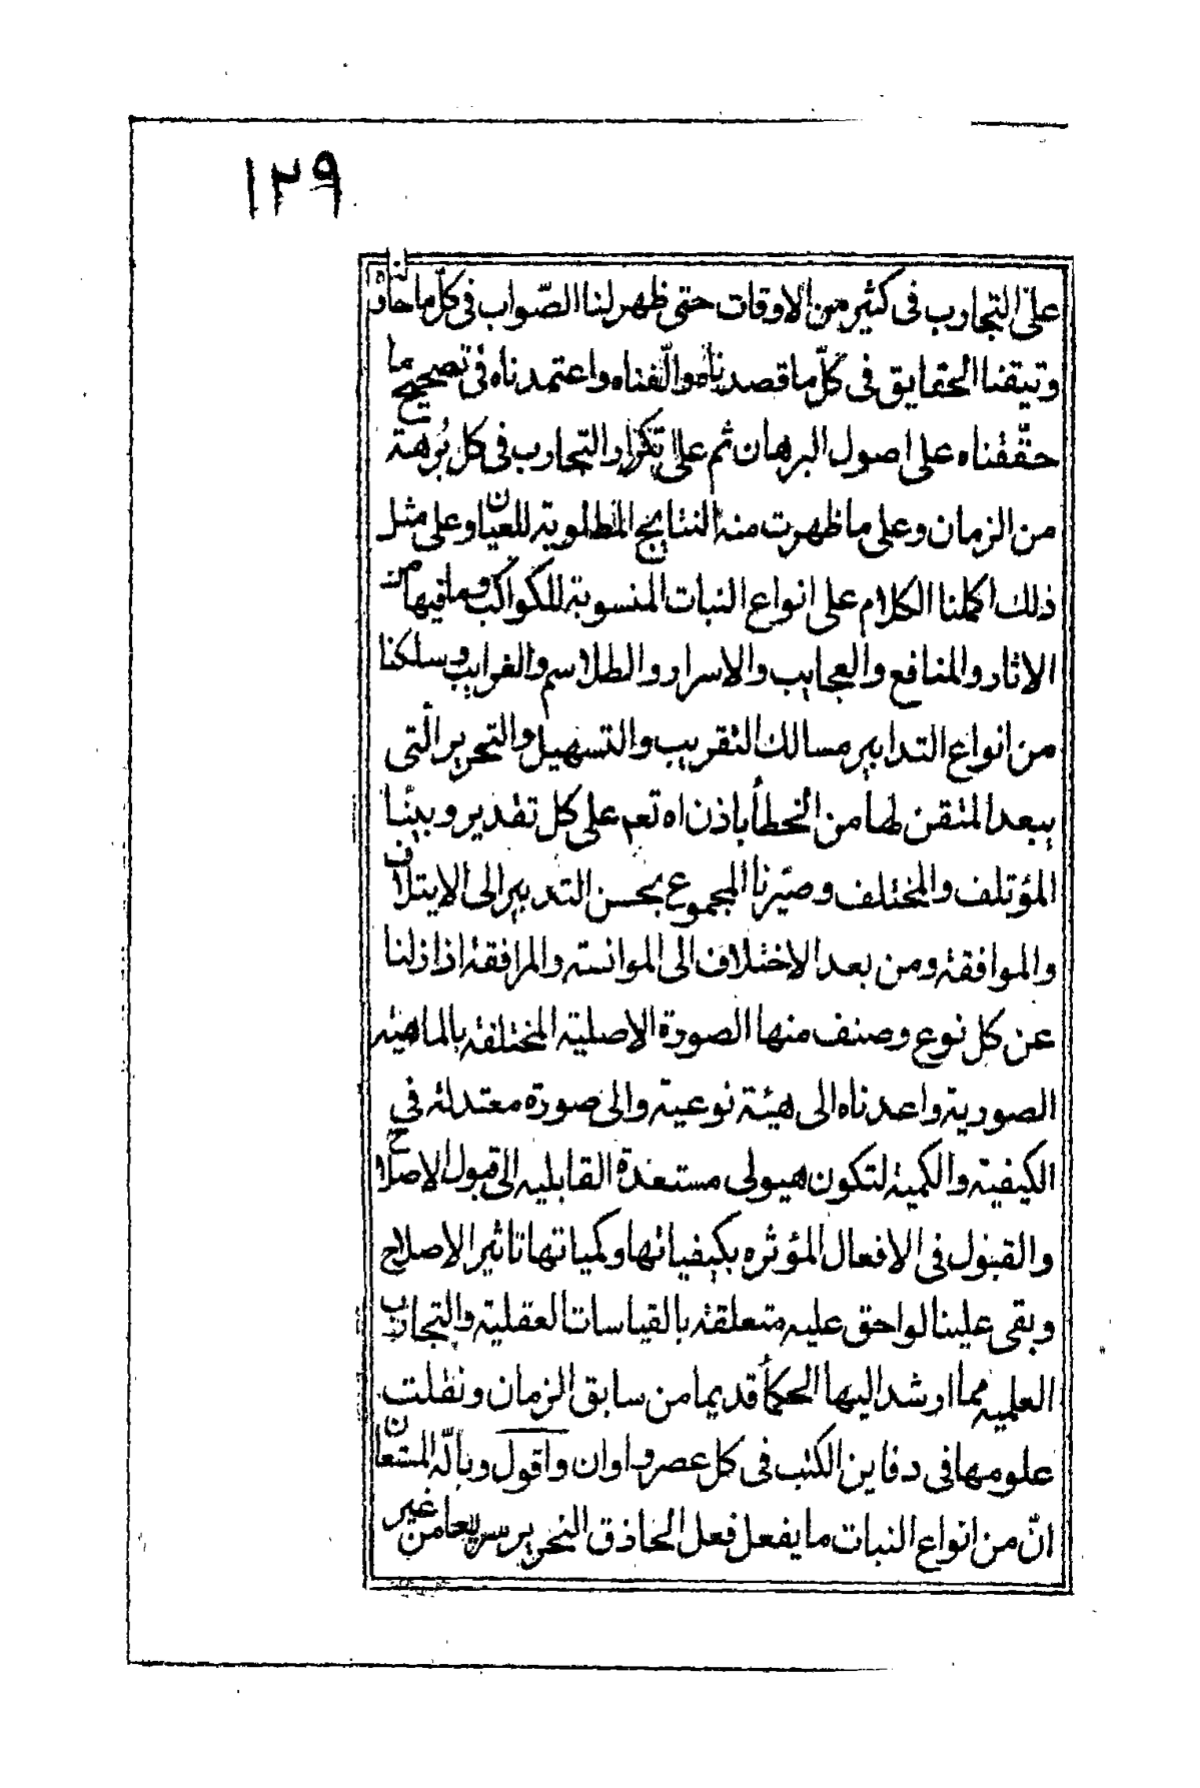 ١٢٩
على التجارب فى كثير من الاوقات حتى ظهر لنا الصّواب فى كلّ ما حاولنا
وتيقنا الحقايق فى كلّ ما قصدناه والّفناه واعتمدناه فى تصحيح ما
حقّقناه على اصول البرهان ثم على تكرار التجارب فى كل بُرهة
من الزمان وعلى ما ظهرت منه النتايج المطلوبة للعيان وعلى مثل
ذلك اكملنا الكلام على انواع النبات المنسوبة للكواكب وما فيها من
الاثار والمنافع والعجايب والاسرار والطلاسم والغرايب وسلكنا
من انواع التدابير مسالك التقريب والتسهيل والتحرير الّتى
يبعد المتقن لها من الخطأ باذن اه تعم على كل تقدير وبيّنا
المؤتلف والمختلف وصيّرنا المجموع بحسن التدبير الى الايتلاف
والموافقة ومن بعد الاختلاف الى الموانسة والمرافقة اذ ازلنا
عن كل نوع وصنف منها الصورة الاصلية المختلفة بالماهية
الصورية واعدناه الى هيئة نوعية والى صورة معتدلة في
الكيفية والكمية لتكون هيولى مستعدة القابليه الى قبول الاصلاح
والقبول فى الافعال المؤثره بكيفياتها وكمياتها تاثير الاصلاح
وبقى علينا لواحق عليه متعلقة بالقياسات العقلية والتجارب
العلميه مما ارشد اليها الحكمأ قديما من سابق الزمان ونقلت
علومها فى دفاين الكتب فى كل عصر واوان واقول وباللّه المستعان
انّ من انواع النبات ما يفعل فعل الحاذق النحرير سريعا من غير